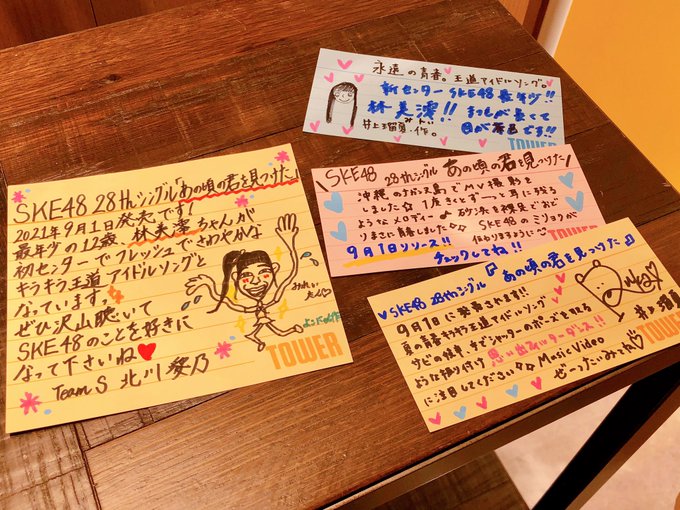 SKE48 28thシングル「あの頃の君を見つけた」
2021年9月1日発売です!
最年少の12歳、林美澪ちゃんが
初センターでフレッシュでさわやかな
キラキラ王道アイドルソングと
なっています。
ぜひ沢山聴いて
SKE48のことを好きに
なって下さいね
Team S 北川愛乃
よこの作
TOWER
永遠の青春。王道アイドルソング。
新センターSKE48最年少!!
林美澪!! まつ毛が長くて
みれい 目が茶色です!!
井上瑠夏・作。
TOWER
\SKE48 28thシングル あの頃の君を見つけた/
沖縄のナガンヌ島でMV撮影を
しました☆ 1度きくとずーっと耳に残る
ようなメロディー 砂浜を裸足でおど
りまさに青春しました SKEのミリョクが
伝わりますように
9月1日リリース!! チェックしてね!!
TOWER
SKE48 28thシングル『あの頃の君を見つけた』
9月1日に発売されます!!
夏の青春キラキラ王道アイドルソング
サビの時、手でシャッターのポーズをとる
ような振り付け 思い出シャッターダンス!!
に注目してください Music Video
ぜーったいみてね
井上瑠夏
TOWER